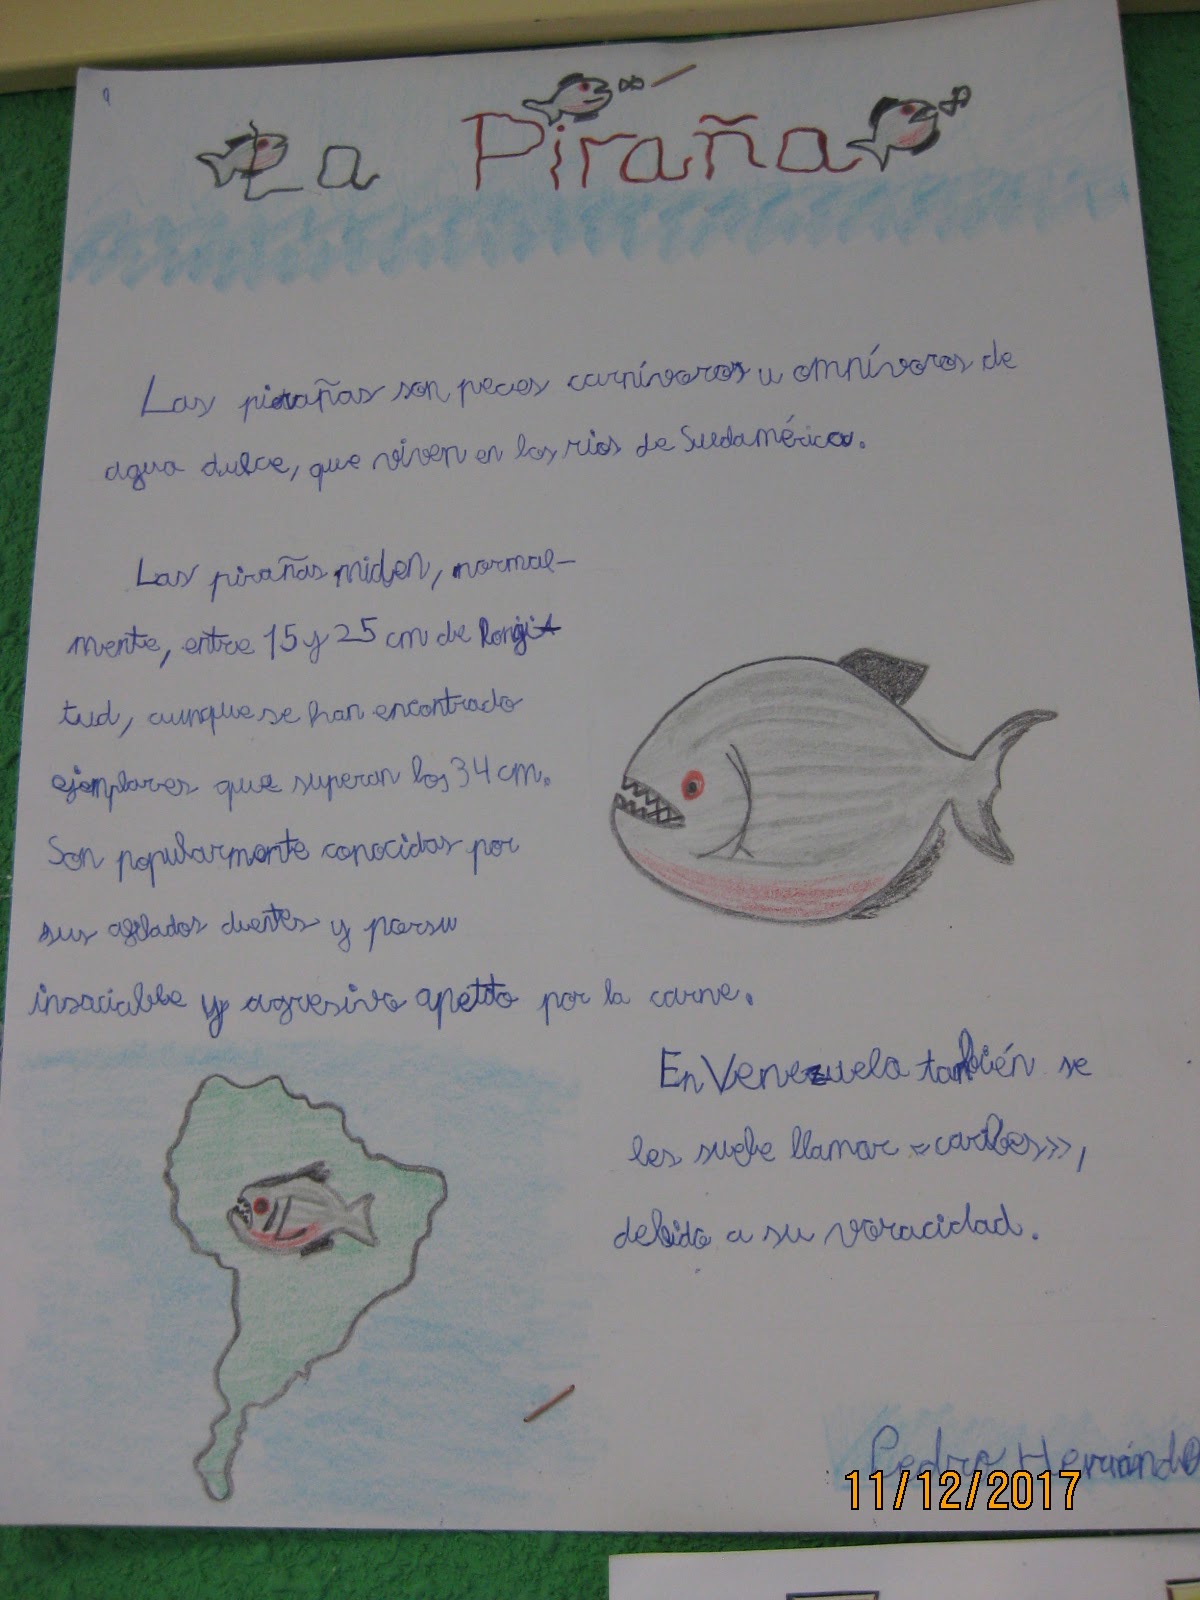 La Piraña
Las pirañas son peces carnívoros u omnívoros de
agua dulce, que viven en los rios de Sudamérica.
Las pirañas miden, normal-
mente, entre 15 y 25 cm de longit
tud, aunque se han encontrado
ejemplares que superan los 34 cm.
Son popularmente conocidas por
sus afilados dientes y por su
insaciable y agresivo apetito por la carne.
En Venezuela también se
les suele llamar «caribes»,
debido a su voracidad.
Pedro Hernánd
11/12/2017